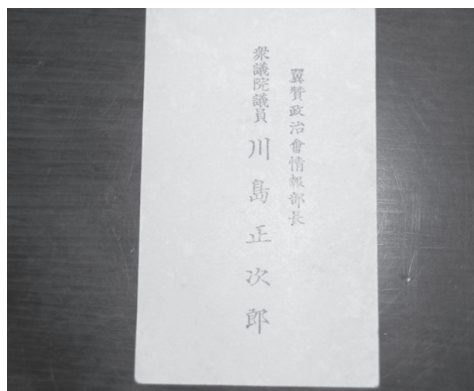 翼賛政治會情報部長
衆議院議員 川島正次郎